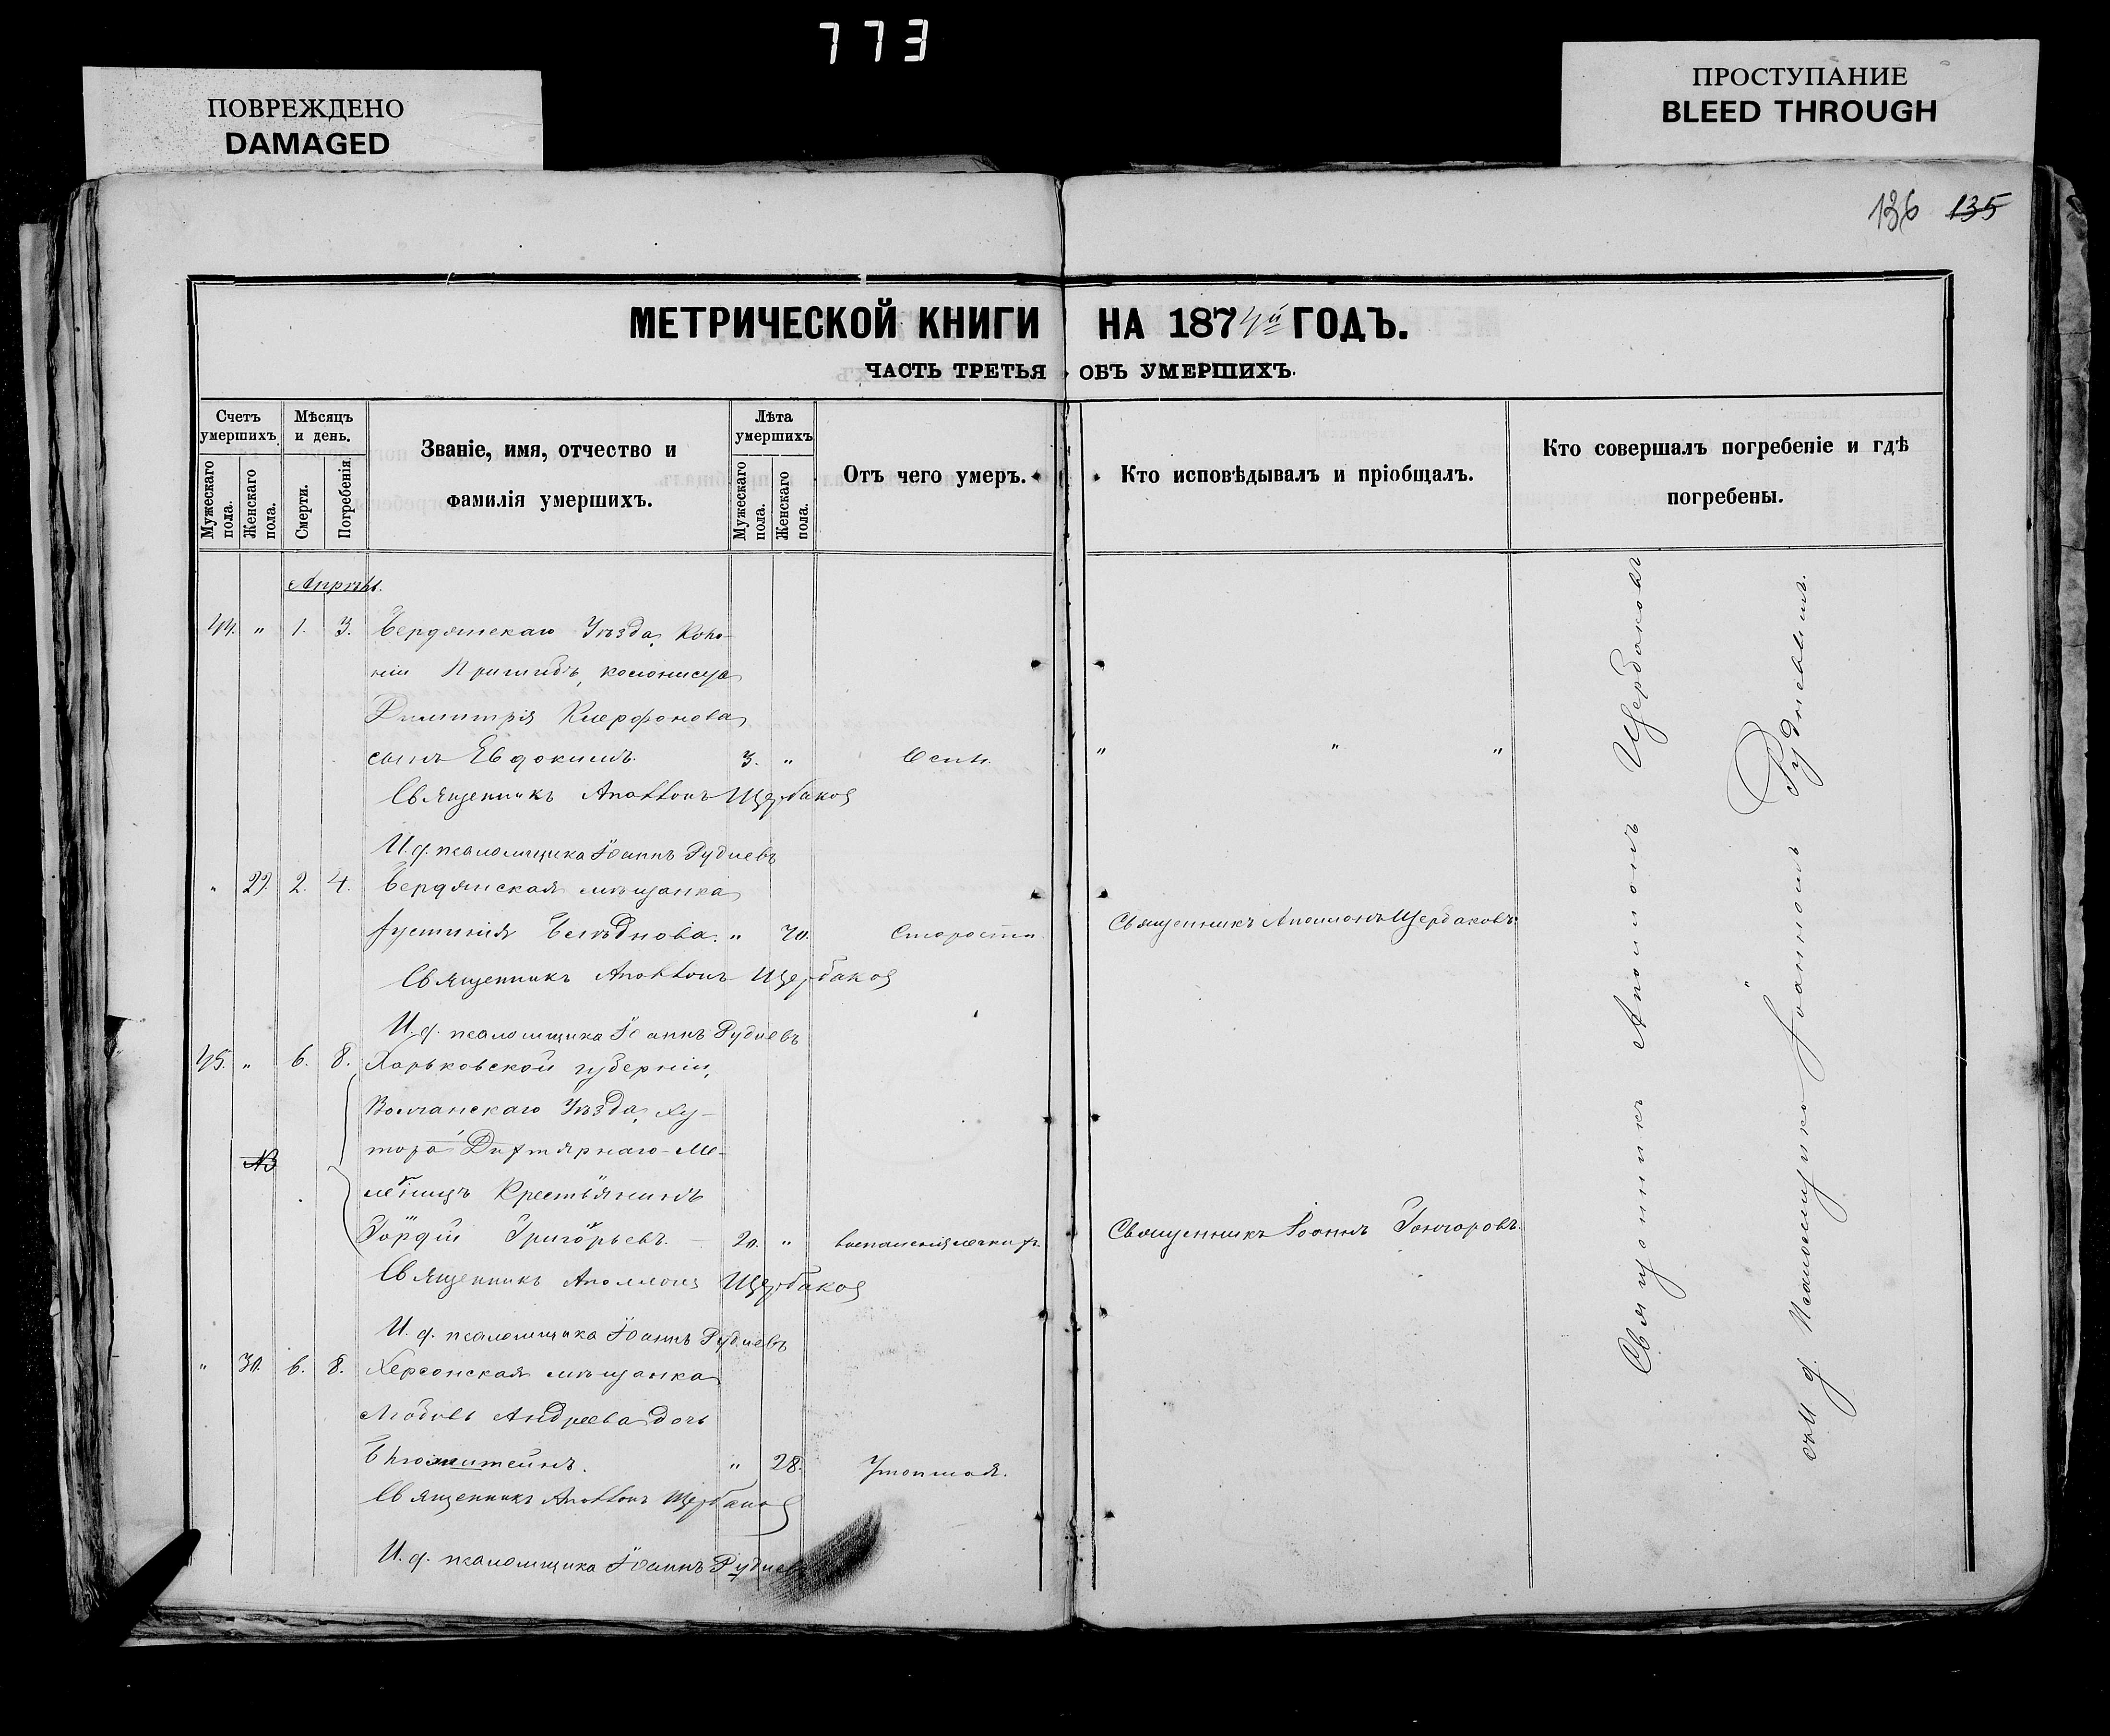 773
ПОВРЕЖДЕНО
DAMAGED
ПРОСТУПАНИЕ
BLEED THROUGH
136 135
МЕТРИЧЕСКОЙ КНИГИ НА 1874й ГОДЪ.
ЧАСТЬ ТРЕТЬЯ ОБЪ УМЕРШИХЪ.
Счетъ умершихъ.
Мужескаго пола.
Женскаго пола.
Мѣсяцъ и день.
Смерти.
Погребенія
Званіе, имя, отчество и фамилія умершихъ.
Лѣта умершихъ
Мужескаго пола.
Женскаго пола.
Отъ чего умеръ.
Кто исповѣдывалъ и пріобщалъ.
Кто совершалъ погребеніе и гдѣ погребены.
Апрѣль.
44. " 1. 3. Бердянскаго Уѣзда, Коло-
ніи Пришибъ, колониста
Димитрія
сынъ Евдокимъ. 3. " Оспы. " " "
Священникъ Аполлонъ Щербаковъ
И. д. псаломщика Іоаннъ Рудневъ
" 29. 2. 4. Бердянская мѣщанка
Іустинія 70. Старости. Священникъ Аполлонъ Щербаковъ.
Священникъ Аполлонъ Щербаковъ
И. д. псаломщика Іоаннъ Рудневъ
45. " 6. 8. Харьковской губерніи,
Волчанскаго Уѣзда, Ху-
тора Дегтярнаго
Крестьянинъ
Гордій Григорьевъ. 20. " Священникъ Іоаннъ Гончаровъ.
Священникъ Аполлонъ Щербаковъ
И. д. псаломщика Іоаннъ Рудневъ
" 30. 6. 8. Херсонская мѣщанка
Любовь Андреева дочь
Блюмштейнъ. " 28. Утопшая.
Священникъ Аполлонъ Щербаковъ
И. д. псаломщика Іоаннъ Рудневъ
Священникъ Аполлонъ Щербаковъ
съ И. д. Псаломщика Іоанномъ Рудневымъ.